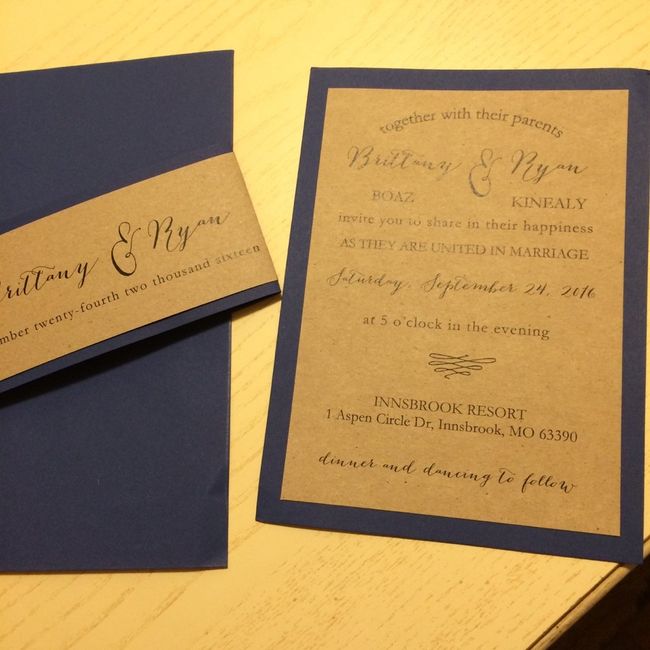 Brittany & Ryan
mber twenty-fourth two thousand sixteen
together with their parents
Brittany & Ryan
BOAZ KINEALY
invite you to share in their happiness
AS THEY ARE UNITED IN MARRIAGE
Saturday, September 24, 2016
at 5 o'clock in the evening
INNSBROOK RESORT
1 Aspen Circle Dr, Innsbrook, MO 63390
dinner and dancing to follow